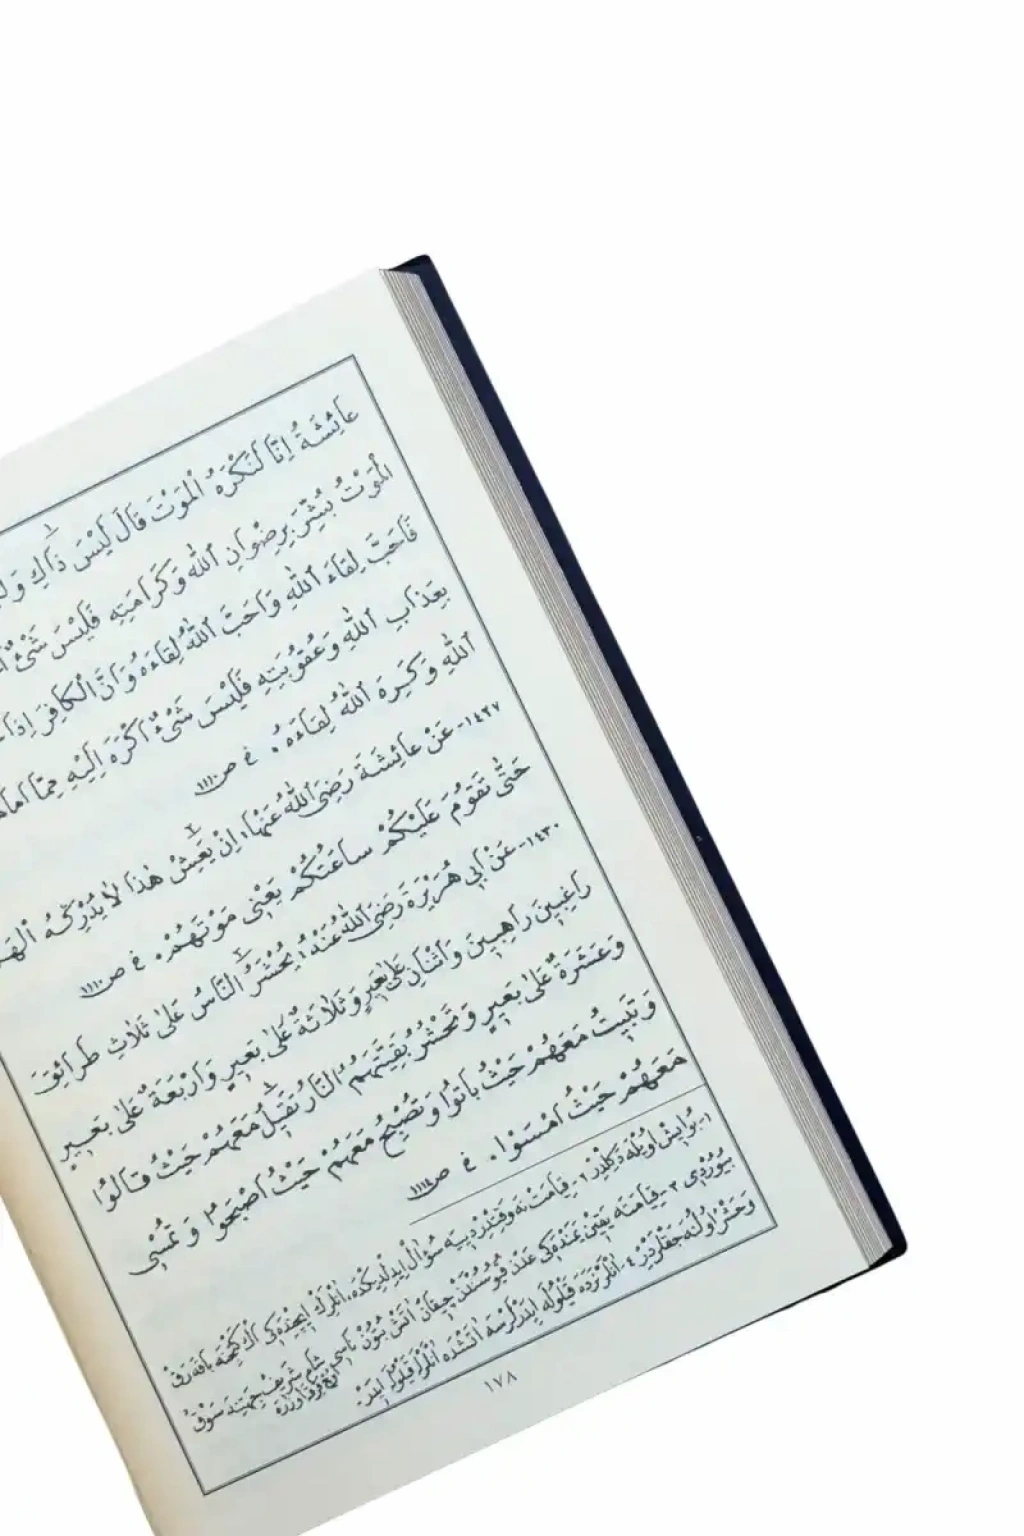 عَائِشَةُ اِنَّا لَنَكْرَهُ الْمَوْتَ قَالَ لَيْسَ ذَاكِ
الْمَوْتُ بُشِّرَ بِرِضْوَانِ اللّٰهِ وَكَرَامَتِهِ فَلَيْسَ شَىْءٌ
فَاَحَبَّ لِقَاءَ اللّٰهِ وَاَحَبَّ اللّٰهُ لِقَاءَهُ وَاَنَّ الْكَافِرَ اِذَا
بِعَذَابِ اللّٰهِ وَعُقُوبَتِهِ فَلَيْسَ شَىْءٌ اَكْرَهَ اِلَيْهِ مِمَّا
اللّٰهِ وَكَرِهَ اللّٰهُ لِقَاءَهُ. خ ص ١١١٠
١٤٢٧- عَنْ عَائِشَةَ رَضِىَ اللّٰهُ عَنْهَا: اِنْ يَعِيشُ هٰذَا لَا يُدْرِكْهُ
حَتّٰى تَقُومَ عَلَيْكُمْ سَاعَتُكُمْ يَعْنِى مَوْتَهُمْ. خ ص ١١١٠
١٤٣٠- عَنْ اَبِى هُرَيْرَةَ رَضِىَ اللّٰهُ عَنْهُ: يُحْشَرُ النَّاسُ عَلٰى ثَلَاثِ طَرَائِقَ
رَاغِبِينَ رَاهِبِينَ وَاثْنَانِ عَلٰى بَعِيرٍ وَثَلَاثَةٌ عَلٰى بَعِيرٍ وَاَرْبَعَةٌ عَلٰى بَعِيرٍ
وَعَشَرَةٌ عَلٰى بَعِيرٍ وَتَحْشُرُ بَقِيَّتَهُمُ النَّارُ تَقِيلُ مَعَهُمْ حَيْثُ قَالُوا
وَتَبِيتُ مَعَهُمْ حَيْثُ بَاتُوا وَتُصْبِحُ مَعَهُمْ حَيْثُ اَصْبَحُوا وَتُمْسِى
مَعَهُمْ حَيْثُ اَمْسَوْا. خ ص ١١١٤
١- بُو ايش اويله دكلدر ٢- قيامت نه وقتدر دييه سؤال ايديلديكده، انلرك ايچنده كى اك كنجنه باقه رق
بيوردى ٣- قيامته يقين يمنده كى عدن
وحشر اولنه جقلردر ٤- انلر نرده قيلوله ايدرلرسه آتشده انلرله قيلوله ايدر.
١٧٨